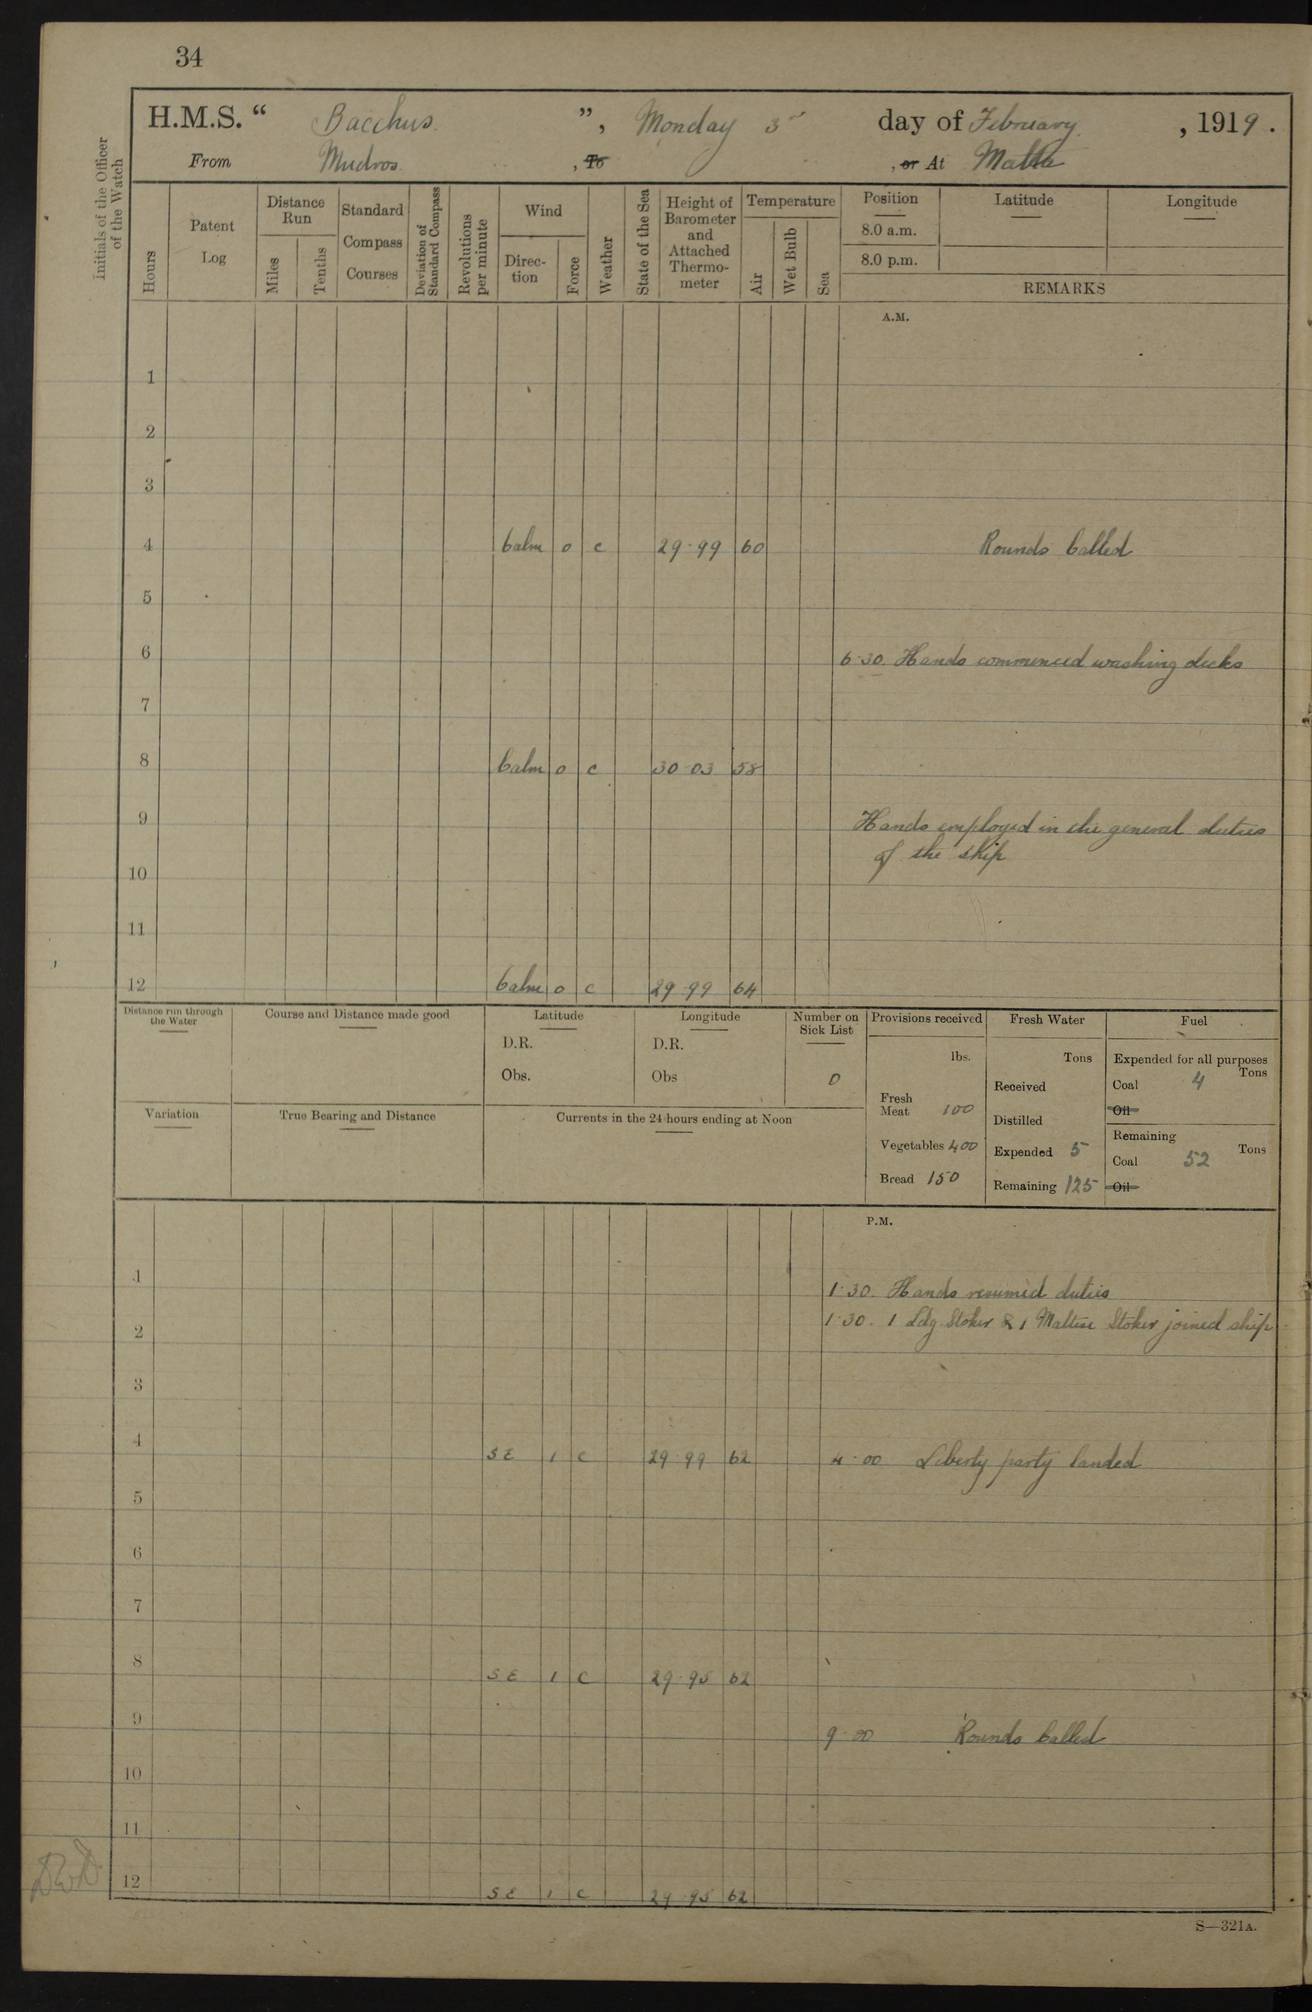 34
H.M.S. “ Bacchus ”, Monday 3rd day of February, 1919.
From Mudros, To , or At Malta
Initials of the Officer of the Watch
Hours
Patent Log
Distance Run
Miles
Tenths
Standard Compass Courses
Deviation of Standard Compass
Revolutions per minute
Wind
Direction
Force
Weather
State of the Sea
Height of Barometer and Attached Thermometer
Temperature
Air
Wet Bulb
Sea
Position Latitude Longitude
8.0 a.m.
8.0 p.m.
REMARKS
A.M.
1
2
3
4 Calm 0 c 29.99 60 Rounds Called
5
6 6.30. Hands commenced washing decks
7
8 Calm 0 c 30.03 58
9 Hands employed in the general duties
of the ship
10
11
12 Calm 0 c 29.99 64
Distance run through the Water
Course and Distance made good
Latitude
D.R.
Obs.
Longitude
D.R.
Obs
Number on Sick List
0
Provisions received
lbs.
Fresh Meat 100
Vegetables 400
Bread 150
Fresh Water
Tons
Received
Distilled
Expended 5
Remaining 125
Fuel
Expended for all purposes
Tons
Coal 4
Oil
Remaining
Tons
Coal 52
Oil
Variation
True Bearing and Distance
Currents in the 24 hours ending at Noon
P.M.
1 1.30. Hands resumed duties
2 1.30. 1 Ldg Stoker & 1 Maltese Stoker joined ship
3
4 SE 1 c 29.99 62 4.00 Liberty party landed
5
6
7
8 SE 1 c 29.95 62
9 9.00 Rounds Called
10
11
12 SE 1 c 29.95 62
S—321A.